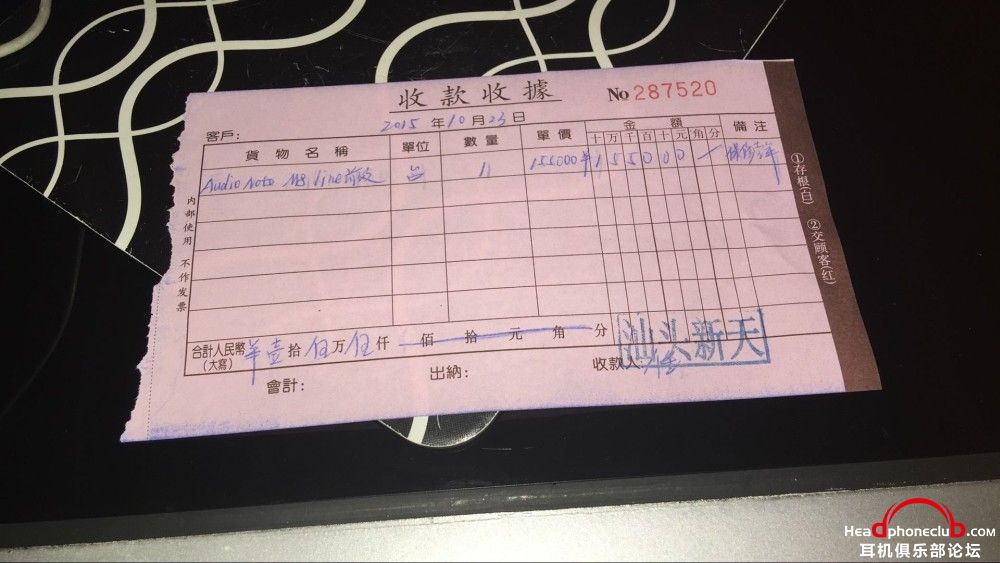 收款收據
No 287520
客戶:
2015 年 10 月 23 日
貨物名稱 單位 數量 單價 金額 備注
十 万 千 百 十 元 角 分
Audio Note M8 line前级 台 11 155000 1 5 5 0 0 0
内部使用 不作发票
合計人民幣 壹 拾 伍 万 伍 仟 佰 拾 元 角 分
(大寫)
汕头新天
會計: 出納: 收款人:
①存根(白) ②交顾客(红)
Headphoneclub.com
耳机俱乐部论坛